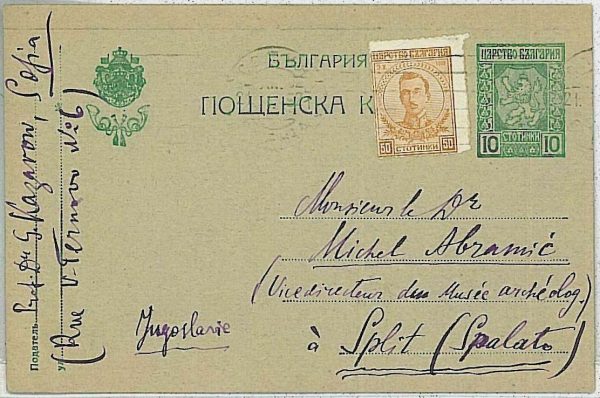 БЪЛГАРИЯ
ПОЩЕНСКА К
ЦАРСТВО БЪЛГАРИЯ
50 50
СТОТИНКИ
ЦАРСТВО БЪЛГАРИЯ
СТОТИНКИ
10 10
21.
Monsieur le Dr
Michel Abramić
(Vicedirecteur du Musée archéolog.
à Split (Spalato)
Jugoslavie
Податель Prof. Dr G. Kazarow, Sofia
(Rue V-Ternovo № 6)